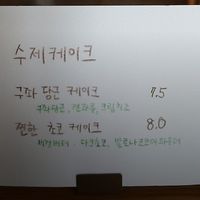 수제케이크
구좌 당근 케이크 7.5
구좌당근, 견과류, 크림치즈
찐한 초코 케이크 8.0
다크초코, 발로나코코아파우더